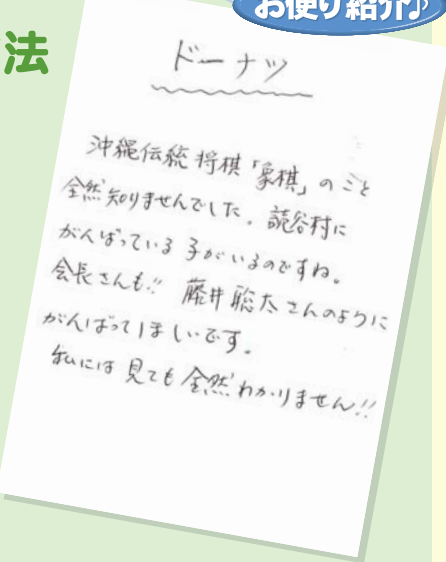 お便り紹介♪
法
ドーナツ
沖縄伝統将棋「象棋」のこと
全然知りませんでした。読谷村に
がんばっている子がいるのですね。
会長さんも!! 藤井聡太さんのように
がんばってほしいです。
私には見ても全然わかりません!!